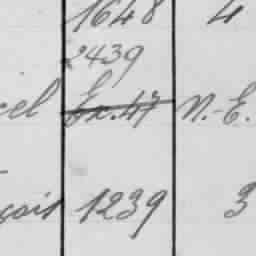 1648 4
2439
cel Ex. 47 N.-E.
çois 1239 3